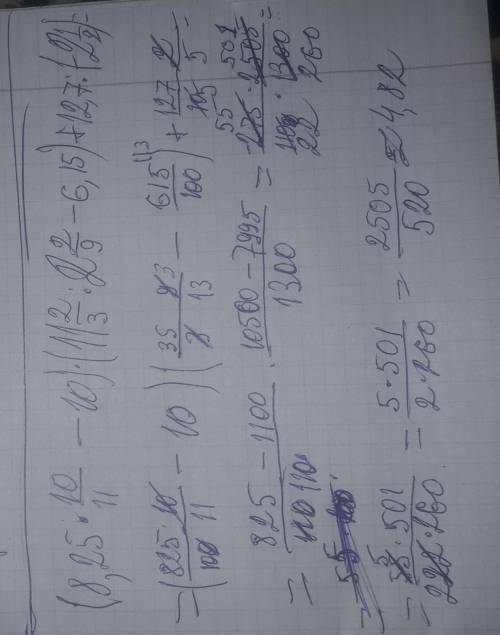 (8,25 · 10/11 − 10) · (11 2/3 : 2 2/9 − 6,15) + 12,7 : (2 1/2) =
= (825 · 10/100 11 − 10) (35/3 · 3/13 − 615/100) + 127/10 · 2/5 =
= 825 − 1100/110 · 10500 − 7995/1300 = 275 · 2505/110 · 1300 55 501 22 260 =
= 55 · 501/22 · 260 = 5 · 501/2 · 260 = 2505/520 = 4,82